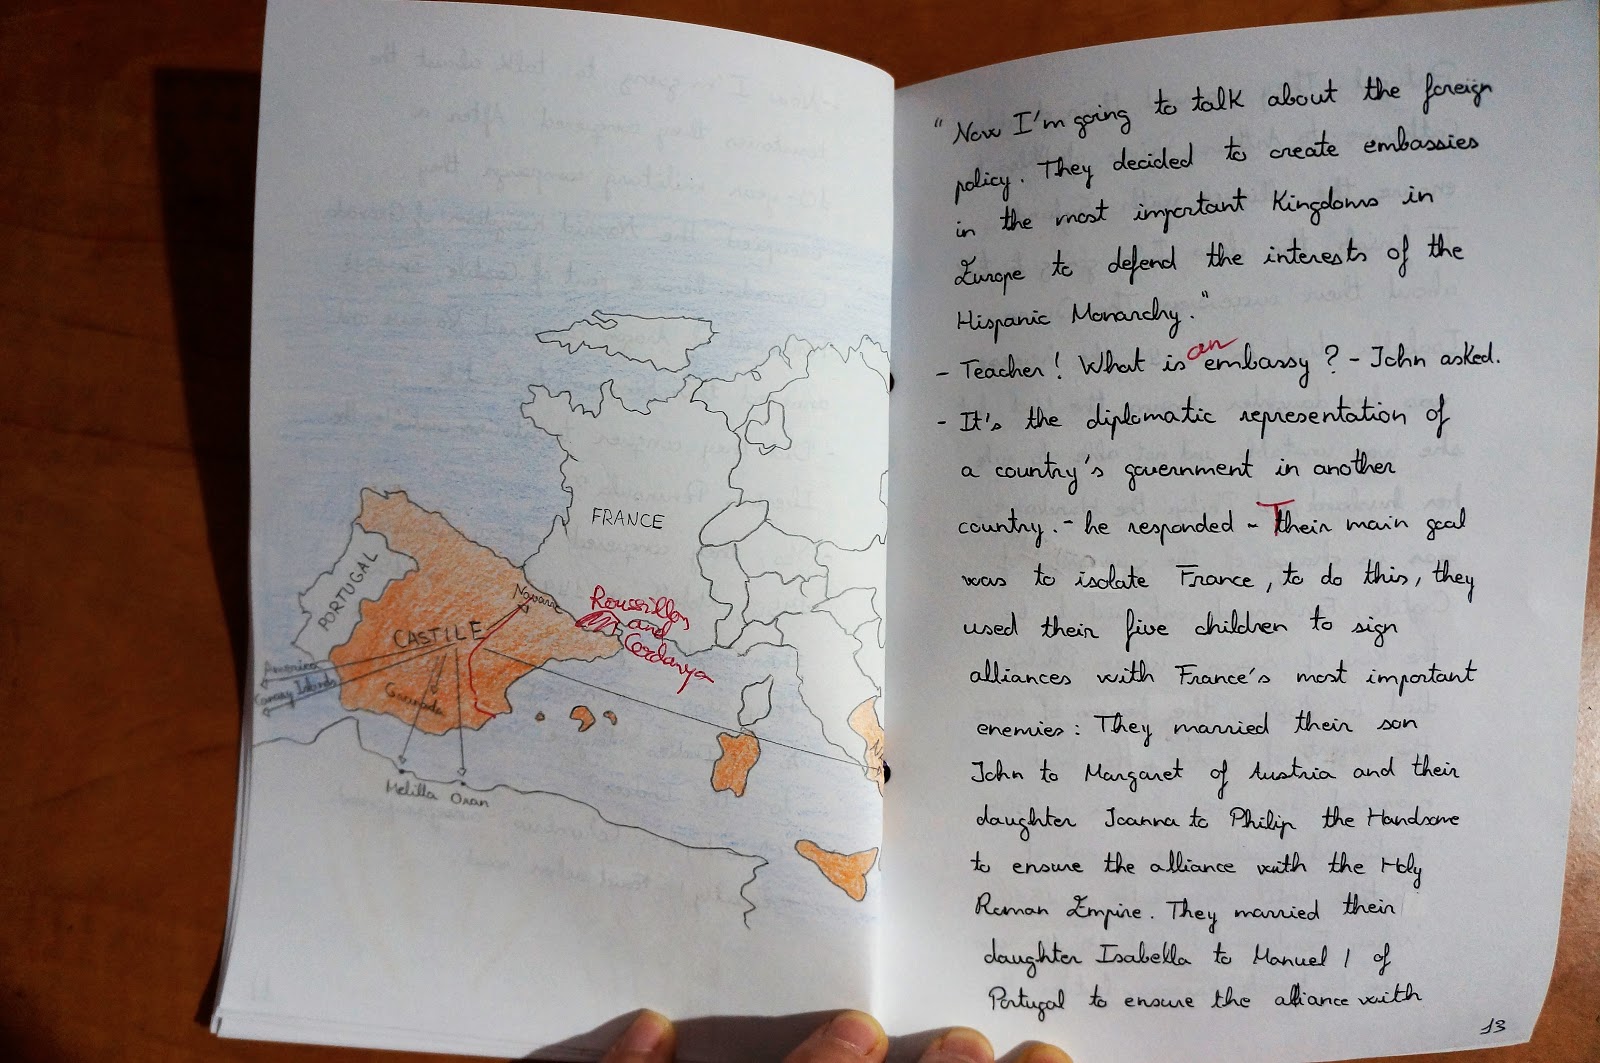 FRANCE
PORTUGAL
Navarre
Roussillon
and
Cerdanya
CASTILE
America
Canary Islands
Granada
Melilla Oran
"Now I'm going to talk about the foreign
policy. They decided to create embassies
in the most important Kingdoms in
Europe to defend the interests of the
Hispanic Monarchy."
- Teacher! What is an embassy? - John asked.
- It's the diplomatic representation of
a country's government in another
country. - he responded - Their main goal
was to isolate France, to do this, they
used their five children to sign
alliances with France's most important
enemies: They married their son
John to Margaret of Austria and their
daughter Joanna to Philip the Handsome
to ensure the alliance with the Holy
Roman Empire. They married their
daughter Isabella to Manuel I of
Portugal to ensure the alliance with
13